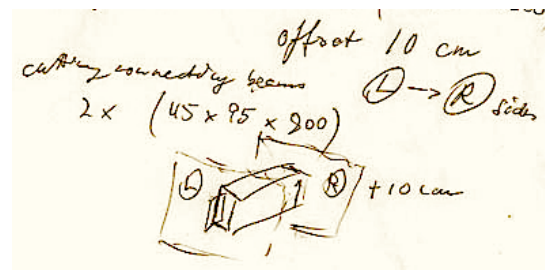 offset 10 cm
cutting connecting beams
Ⓛ → Ⓡ sides
2x (45 x 95 x 800)
Ⓛ Ⓡ +10 cm